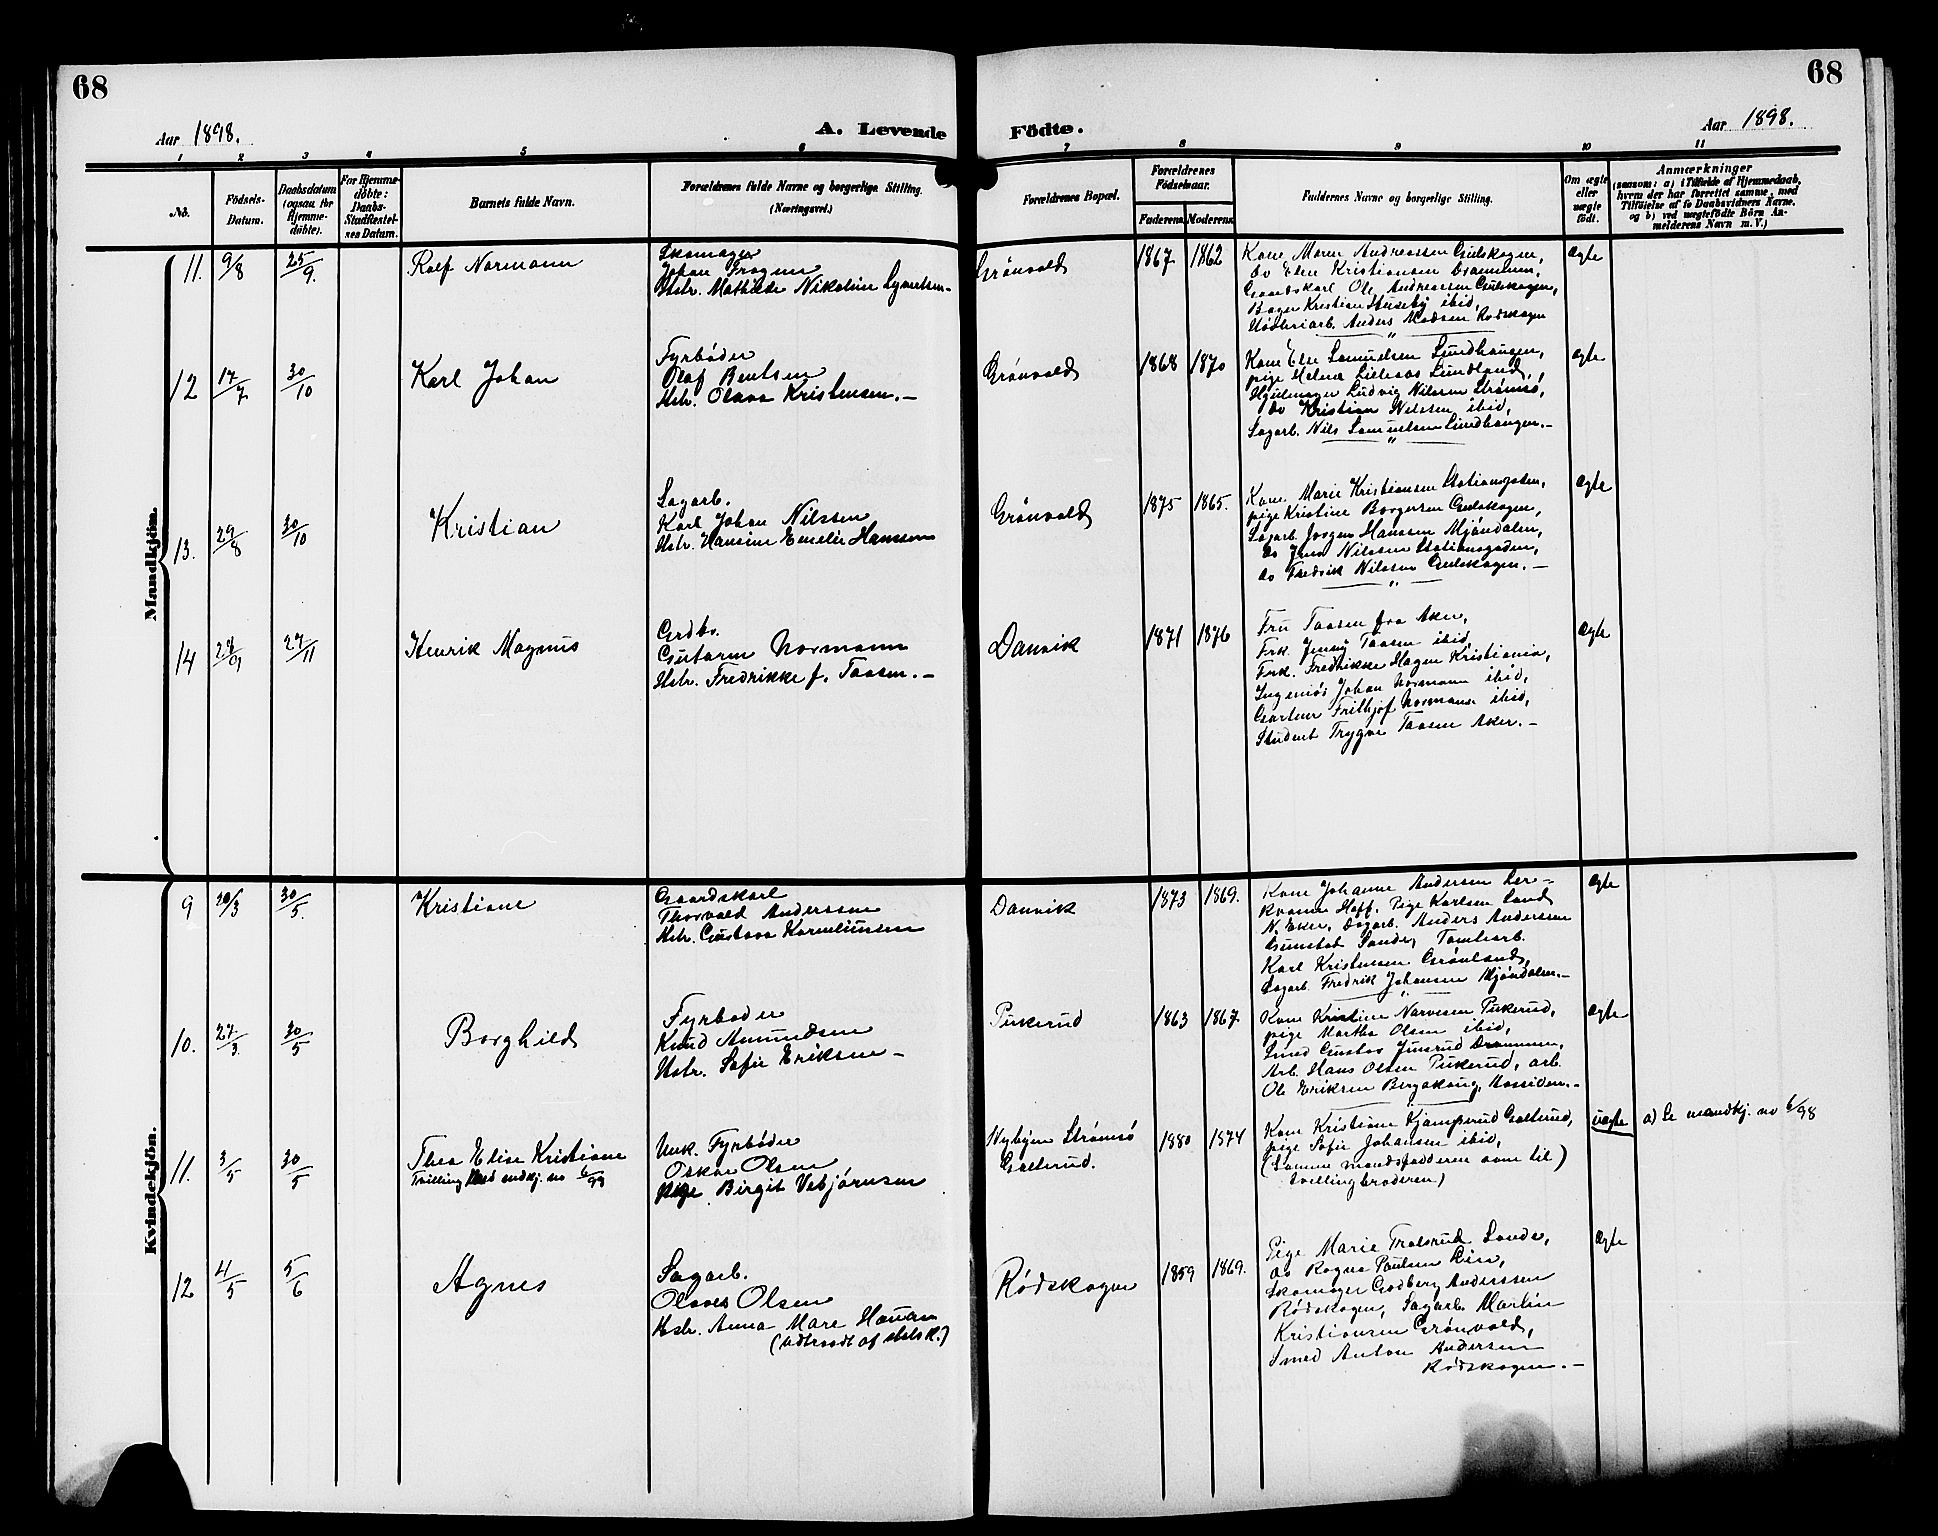 68
68
Aar 1898.
A. Levende Födte.
Aar 1898.
1 2 3 4 5 6 7 8 9 10 11
No.
Födsels-Datum.
Daabsdatum (ogsaa for Hjemme-döbte).
For Hjemme-döbte: Daabs-Stadfæstel-ses Datum.
Barnets fulde Navn.
Forældrenes fulde Navne og borgerlige Stilling. (Næringsvei.)
Forældrenes Bopæl.
Forældrenes Födselsaar.
Faderens. Moderens.
Faddernes Navne og borgerlige Stilling.
Om ægte eller uægte födt.
Anmærkninger
(saasom: a) i Tilfælde af Hjemmedaab,
hvem der har forrettet samme, med
Tilföielse af to Daabsvidners Navne,
og b) ved uægtefödte Börn An-
melderens Navn m. V.)
Mandkjön.
11. 9/8 25/9. Rolf Normann
Skomager
Johan Frogner
Hstr. Mathilde Nikoline Syvertsen.-
Grönvold 1867 1862
Kone Maren Andreassen Gulskogen,
do Elen Kristiansen Drammen,
Gaardskarl Ole Andreassen Gulskogen,
Bager Kristian Huseby ibid,
Anders Madsen Rödskogen
ægte
12 17/7 30/10 Karl Johan
Fyrböder
Olaf Bentsen
Hstr. Olava Kristensen.-
Grönvold 1868 1870
Kone Else Samuelsen Lundhaugen,
pige Helene Lillesos Sundland,
Hjulmager Ludvig Nilssen Strömsö,
do Kristian Nilssen ibid,
Sagarb. Nils Samuelsen Lundhaugen.-
ægte
13. 29/8 30/10 Kristian
Sagarb.
Karl Johan Nilssen
Hstr. Hansine Emelie Hanssen
Grönvold 1875 1865.
Kone Marie Kristiansen Stationsgaden,
pige Kristine Borgersen Gulskogen,
Sagarb. Jörgen Hansen Mjöndalen,
do Jens Nilssen Stationsgaden,
do Fredrik Nilssen Gulskogen.-
ægte
14 27/9 27/11 Henrik Magnus
Grdbr.
Guttorm Normann
Hstr. Fredrikke f. Taasen.-
Danvik 1871 1876
Fru Taasen fra Aker,
Frk. Jenny Taasen ibid,
Frk. Fredrikke Hagen Kristiania,
Ingeniör Johan Normann ibid,
Gartner Frithjof Normann ibid,
Student Trygve Taasen Aker.-
ægte
Kvindekjön.
9 20/3 30/5. Kristiane
Gaardskarl
Thorvald Anderssen
Hstr. Gustava Korneliussen
Danvik 1873 1869.
Kone Johanne Andersen Ler-
kvame Hoff, Pige Karlsen Land
N. Eker, Dagarb. Anders Anderssen
Gunstad Sande, Tomtearb.
Karl Kristensen Grönland,
Sagarb. Fredrik Johansen Mjöndalen.-
ægte
10. 27/3. 30/5 Borghild
Fyrböder
Knud Amundsen
Hstr. Sofie Eriksen-
Pukerud 1863 1867.
Kone Kristine Narvesen Pukerud,
pige Martha Olsen ibid,
Smed Gustav Juusrud Drammen,
Arb. Hans Olsen Pukerud, arb.
Ole Eriksen Bergskaug, Aassiden.-
ægte
11. 3/5 30/5 Thea Elise Kristiane
Tvilling med mdkj. no 6/98
Unk. Fyrböder
Oskar Olsen
pige Birgit Vebjörnsen
Nybyen Strömsö
Galterud. 1880 1874
Kone Kristiane Kjæmperud Galterud,
pige Sofie Johansen ibid,
(Samme mandsfaddere som til
tvillingbroderen)
uægte
a) Se mandkj. no 6/98
12 4/5 5/6 Agnes
Sagarb.
Olaves Olsen
Hstr. Anna Mare
(udtraadt af statsk.)
Rödskogen 1859 1869.
Pige Marie Sande,
do Ragna Paulsen Lier,
Skomager Godberg Anderssen
Rödskogen, Sagarb. Martin
Kristiansen Grönvold,
Smed Anton Andersen
Rödskogen.-
ægte